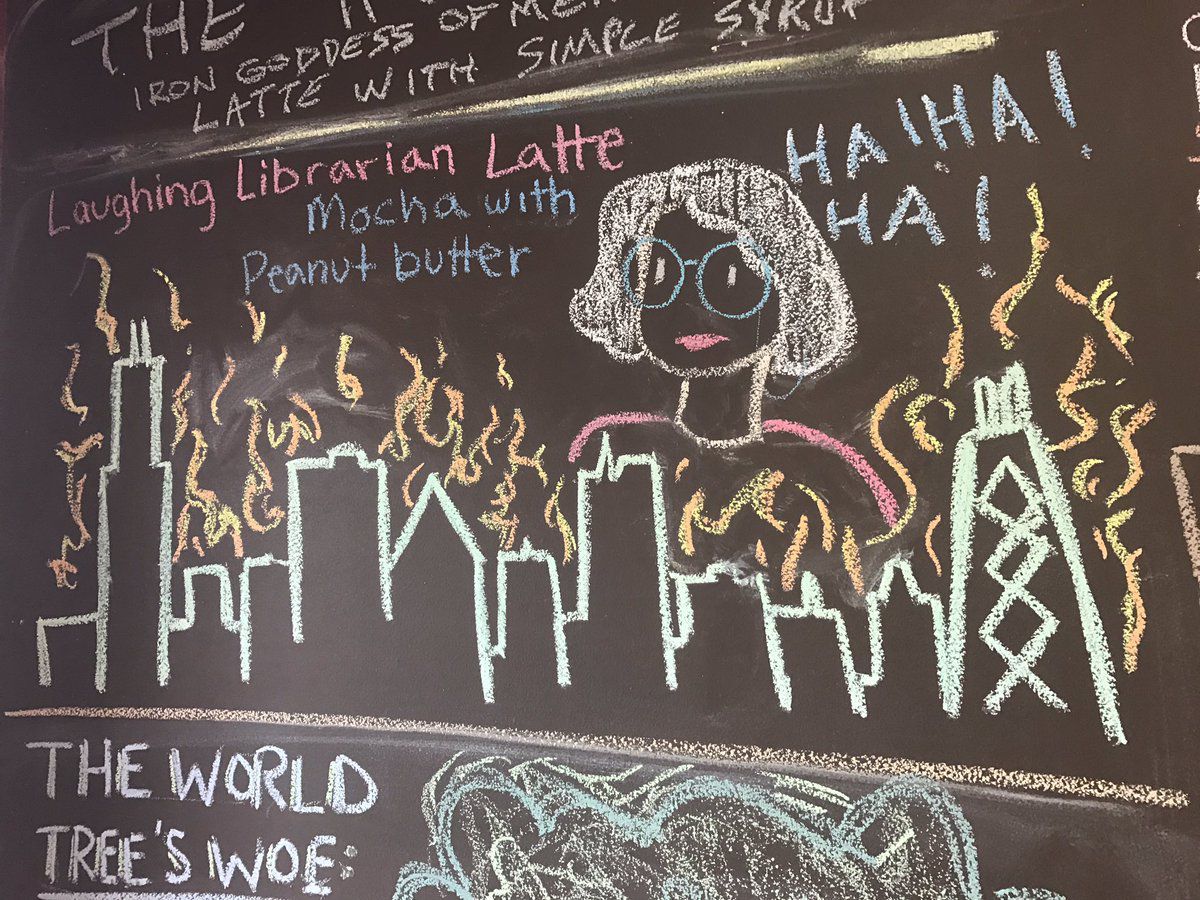 THE
IRON GODDESS OF
LATTE WITH SIMPLE SYRUP
Laughing Librarian Latte
Mocha with
Peanut butter
HA!HA!
HA!
THE WORLD
TREE'S WOE: